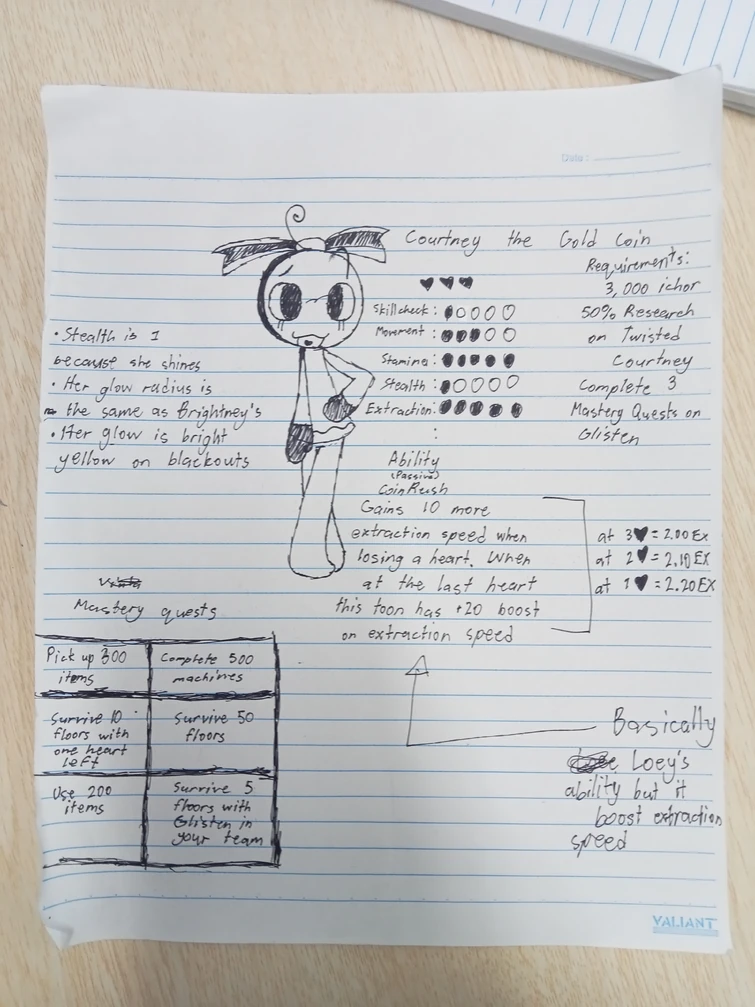 Date :
Courtney the Gold Coin
Requirements:
3,000 ichor
50% Research
on Twisted
Courtney
Complete 3
Mastery Quests on
Glisten
Skillcheck:
Movement:
Stamina:
Stealth:
Extraction:
:
• Stealth is 1
because she shines
• Her glow radius is
the same as Brightney's
• Her glow is bright
yellow on blackouts
Ability
(Passive)
CoinRush
Gains 10 more
extraction speed when
losing a heart. When
at the last heart
this toon has +20 boost
on extraction speed
at 3♥ = 2.00 EX
at 2♥ = 2.10 EX
at 1♥ = 2.20 EX
Mastery quests
Pick up 300
items
Complete 500
machines
Survive 10
floors with
one heart
left
Survive 50
floors
Use 200
items
Survive 5
floors with
Glisten in
your team
Basically
Loey's
ability but it
boost extraction
speed
VALIANT